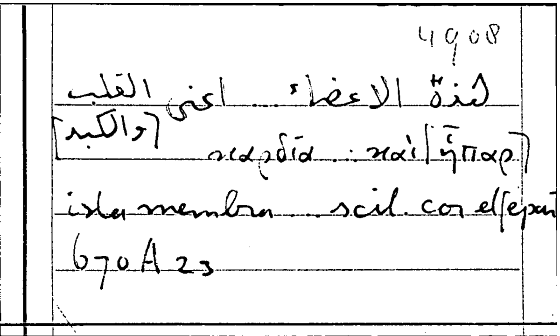 4908
هذه الاعضاء... اعنى القلب
[والكبد]
καρδία : καὶ [ἧπαρ]
ista membra ... scil. cor et [epar
670 A 23